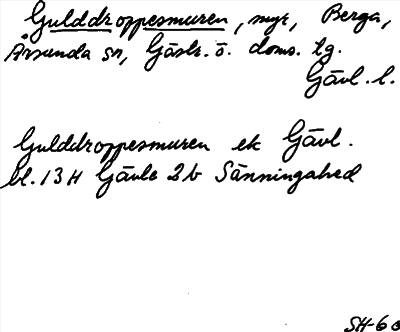 Gulddroppesmuren, myr, Berga,
Årsunda sn, Gästr. ö. doms. tg.
Gävl. l.
Gulddroppesmuren ek Gävl.
bl. 13 H Gävle 2 b Sänningahed
SH-60